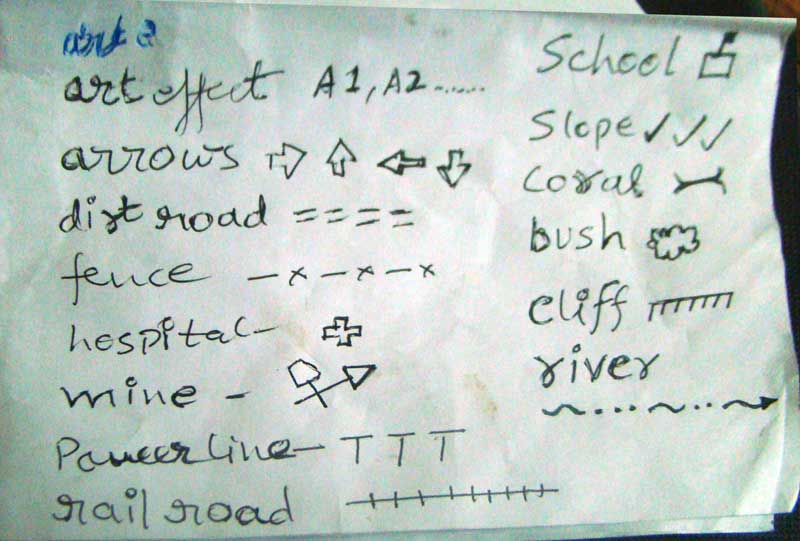 art effect A1, A2......
arrows
dirt road
fence
hospital-
mine -
Power line-
rail road
School
Slope
coral
bush
cliff
river